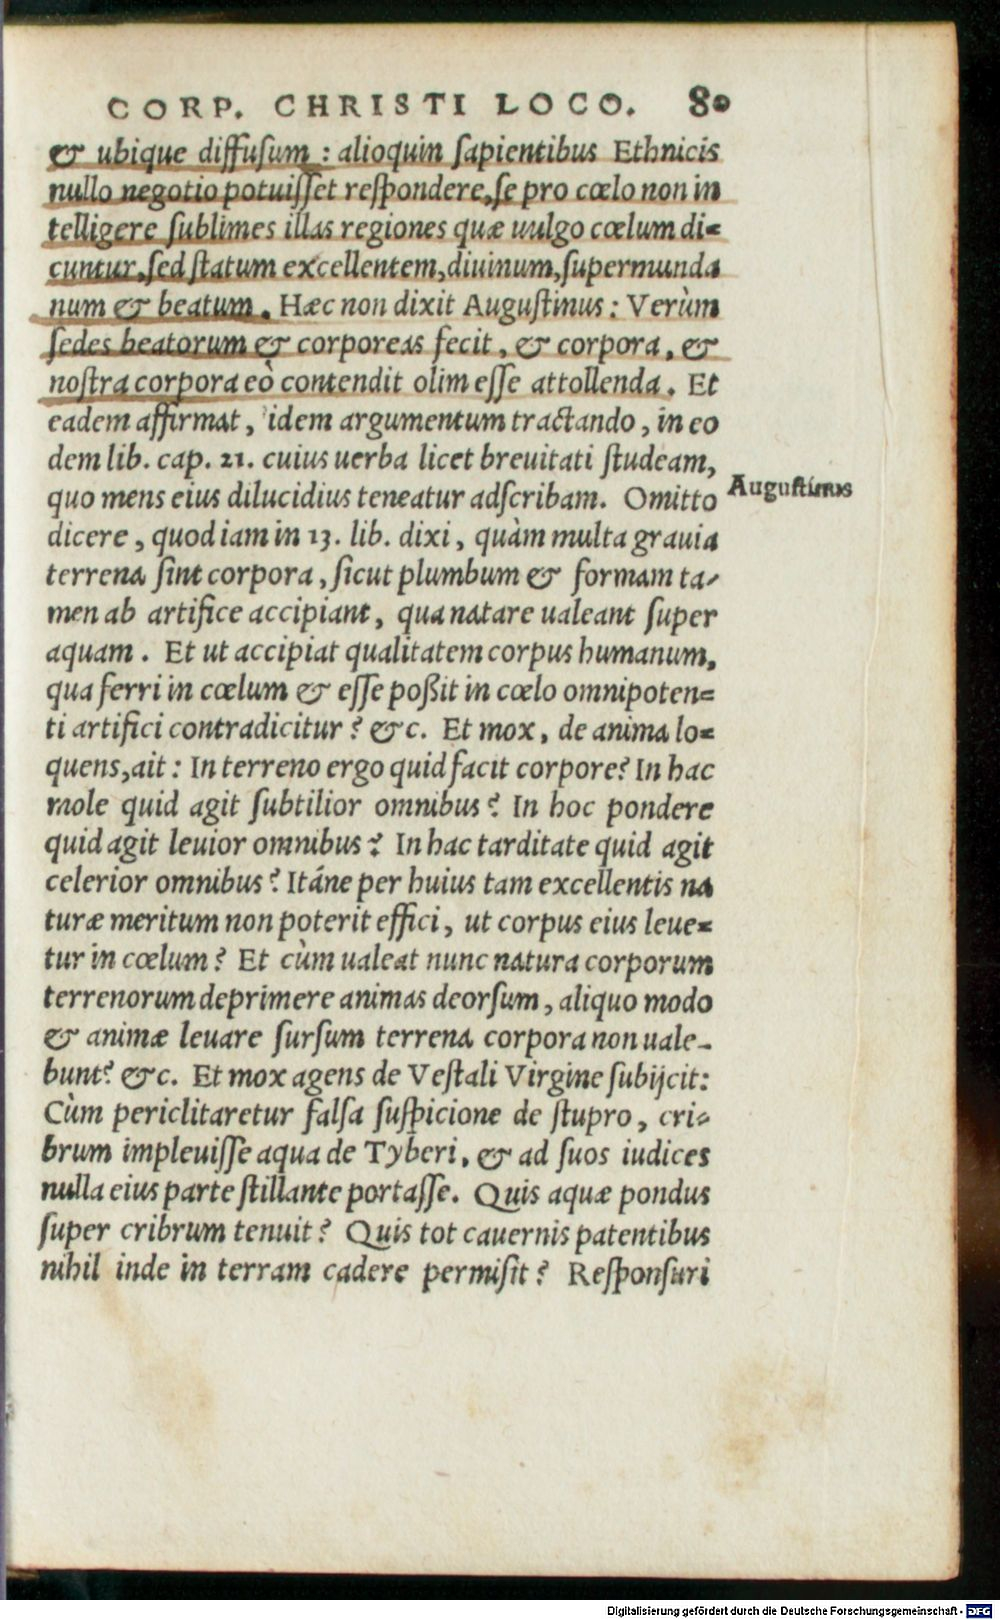 CORP. CHRISTI LOCO. 80
& ubique diffuſum : alioquin ſapientibus Ethnicis
nullo negotio potuiſſet reſpondere, ſe pro cœlo non in
telligere ſublimes illas regiones quæ uulgo cœlum di=
cuntur, ſed ſtatum excellentem, diuinum, ſupermunda
num & beatum. Hæc non dixit Auguſtinus : Verùm
ſedes beatorum & corporeas fecit, & corpora, &
noſtra corpora eò contendit olim eſſe attollenda. Et
eadem affirmat, idem argumentum tractando, in eo
dem lib. cap. 21. cuius uerba licet breuitati ſtudeam,
quo mens eius dilucidius teneatur adſcribam. Omitto
Auguſtinus
dicere, quod iam in 13. lib. dixi, quàm multa grauia
terrena ſint corpora, ſicut plumbum & formam ta-
men ab artifice accipiant, qua natare ualeant ſuper
aquam. Et ut accipiat qualitatem corpus humanum,
qua ferri in cœlum & eſſe poßit in cœlo omnipoten=
ti artifici contradicitur ? &c. Et mox, de anima lo=
quens, ait : In terreno ergo quid facit corpore? In hac
mole quid agit ſubtilior omnibus ? In hoc pondere
quid agit leuior omnibus ? In hac tarditate quid agit
celerior omnibus ? Itáne per huius tam excellentis na
turæ meritum non poterit effici, ut corpus eius leue=
tur in cœlum ? Et cùm ualeat nunc natura corporum
terrenorum deprimere animas deorſum, aliquo modo
& animæ leuare ſurſum terrena corpora non uale-
bunt? &c. Et mox agens de Veſtali Virgine ſubijcit:
Cùm periclitaretur falſa ſuſpicione de ſtupro, cri=
brum impleuiſſe aqua de Tyberi, & ad ſuos iudices
nulla eius parte ſtillante portaſſe. Quis aquæ pondus
ſuper cribrum tenuit ? Quis tot cauernis patentibus
nihil inde in terram cadere permiſit ? Reſponſuri
Digitalisierung gefördert durch die Deutsche Forschungsgemeinschaft - DFG